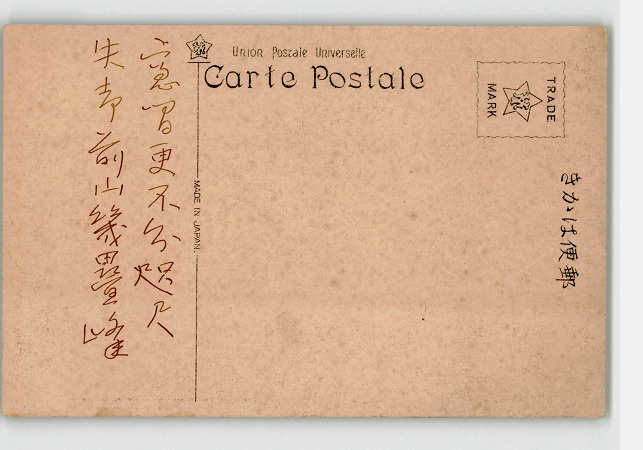 Union Postale Universelle
Carte Postale
TRADE
MARK
きかは便郵
MADE IN JAPAN.
窓間更不分咫尺
失却前山幾疊峰